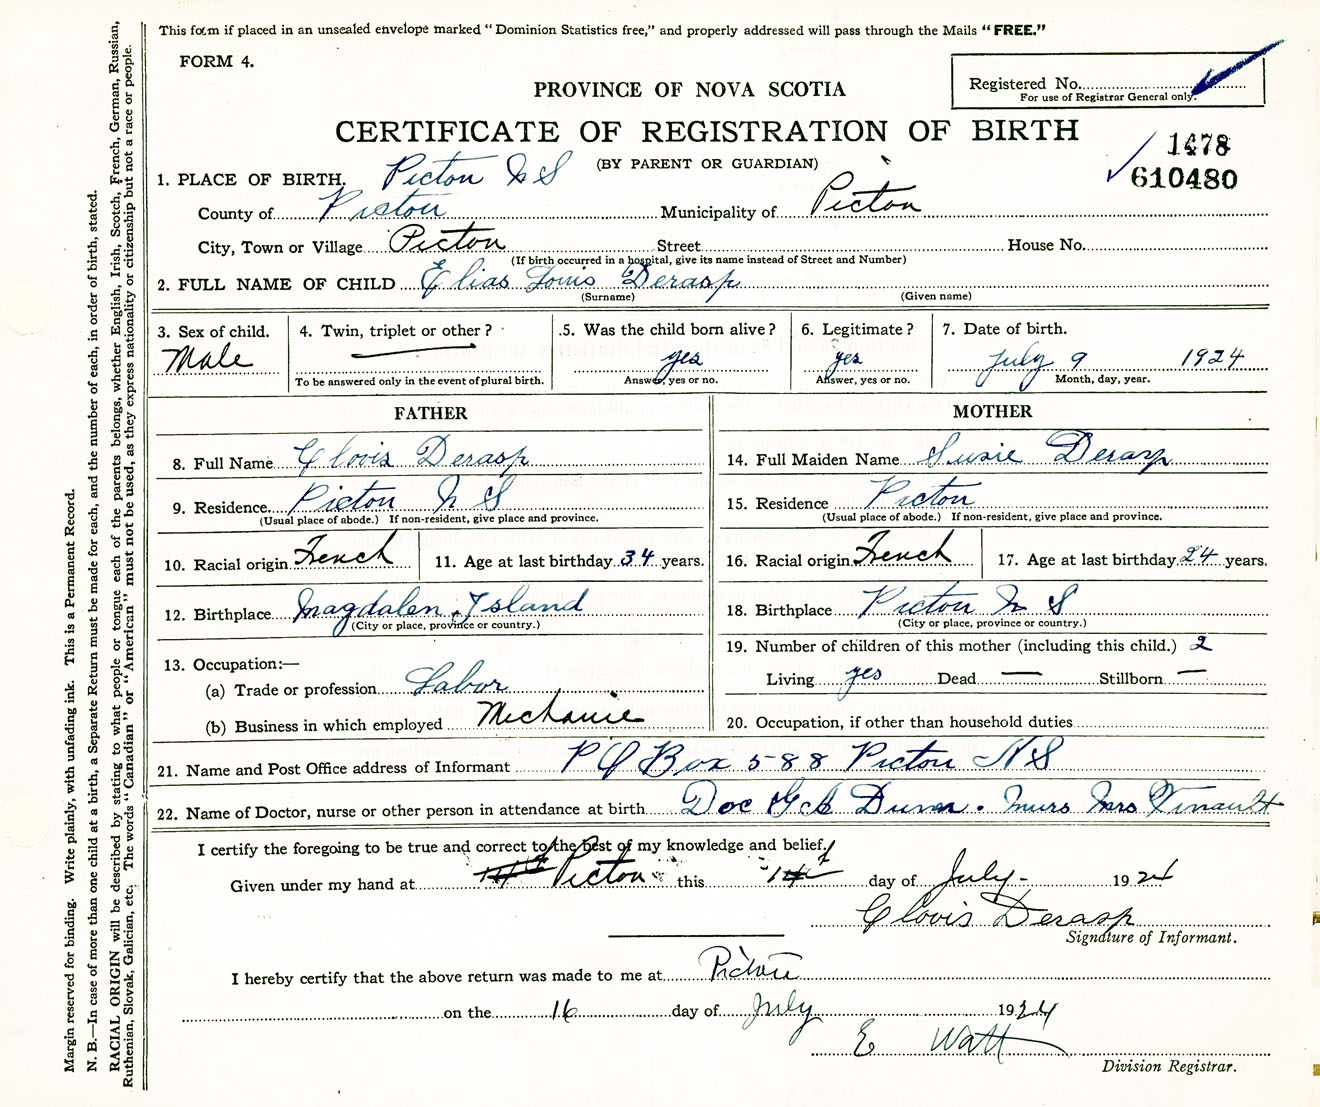 This form if placed in an unsealed envelope marked "Dominion Statistics free," and properly addressed will pass through the Mails "FREE."
FORM 4.
Registered No.
For use of Registrar General only.
PROVINCE OF NOVA SCOTIA
CERTIFICATE OF REGISTRATION OF BIRTH
(BY PARENT OR GUARDIAN)
1478
610480
1. PLACE OF BIRTH. Picton N S
County of Picton Municipality of Picton
City, Town or Village Picton Street House No.
(If birth occurred in a hospital, give its name instead of Street and Number)
2. FULL NAME OF CHILD Elias Louis Derasp
(Surname) (Given name)
3. Sex of child. Male
4. Twin, triplet or other?
To be answered only in the event of plural birth.
5. Was the child born alive? yes
Answer, yes or no.
6. Legitimate? yes
Answer, yes or no.
7. Date of birth.
July 9 1924
Month, day, year.
FATHER
8. Full Name Clovis Derasp
9. Residence Picton N S
(Usual place of abode.) If non-resident, give place and province.
10. Racial origin French 11. Age at last birthday 34 years.
12. Birthplace Magdalen Island
(City or place, province or country.)
13. Occupation:—
(a) Trade or profession Labor
(b) Business in which employed Michanic
MOTHER
14. Full Maiden Name Susie Derasp
15. Residence Picton
(Usual place of abode.) If non-resident, give place and province.
16. Racial origin French 17. Age at last birthday 24 years.
18. Birthplace Picton N S
(City or place, province or country.)
19. Number of children of this mother (including this child.) 2
Living yes Dead — Stillborn —
20. Occupation, if other than household duties
21. Name and Post Office address of Informant P O Box 588 Picton N S
22. Name of Doctor, nurse or other person in attendance at birth Doc Dunn. Nurs Mrs
I certify the foregoing to be true and correct to the best of my knowledge and belief.
Given under my hand at Picton this 14 day of July 1924
Clovis Derasp
Signature of Informant.
I hereby certify that the above return was made to me at Picton
on the 16 day of July 1924
E Watt
Division Registrar.
Margin reserved for binding. Write plainly, with unfading ink. This is a Permanent Record.
N. B.—In case of more than one child at a birth, a Separate Return must be made for each, and the number of each, in order of birth, stated.
RACIAL ORIGIN will be described by stating to what people or tongue each of the parents belongs, whether English, Irish, Scotch, French, German, Russian,
Ruthenian, Slovak, Galician, etc. The words "Canadian" or "American" must not be used, as they express nationality or citizenship but not a race or people.